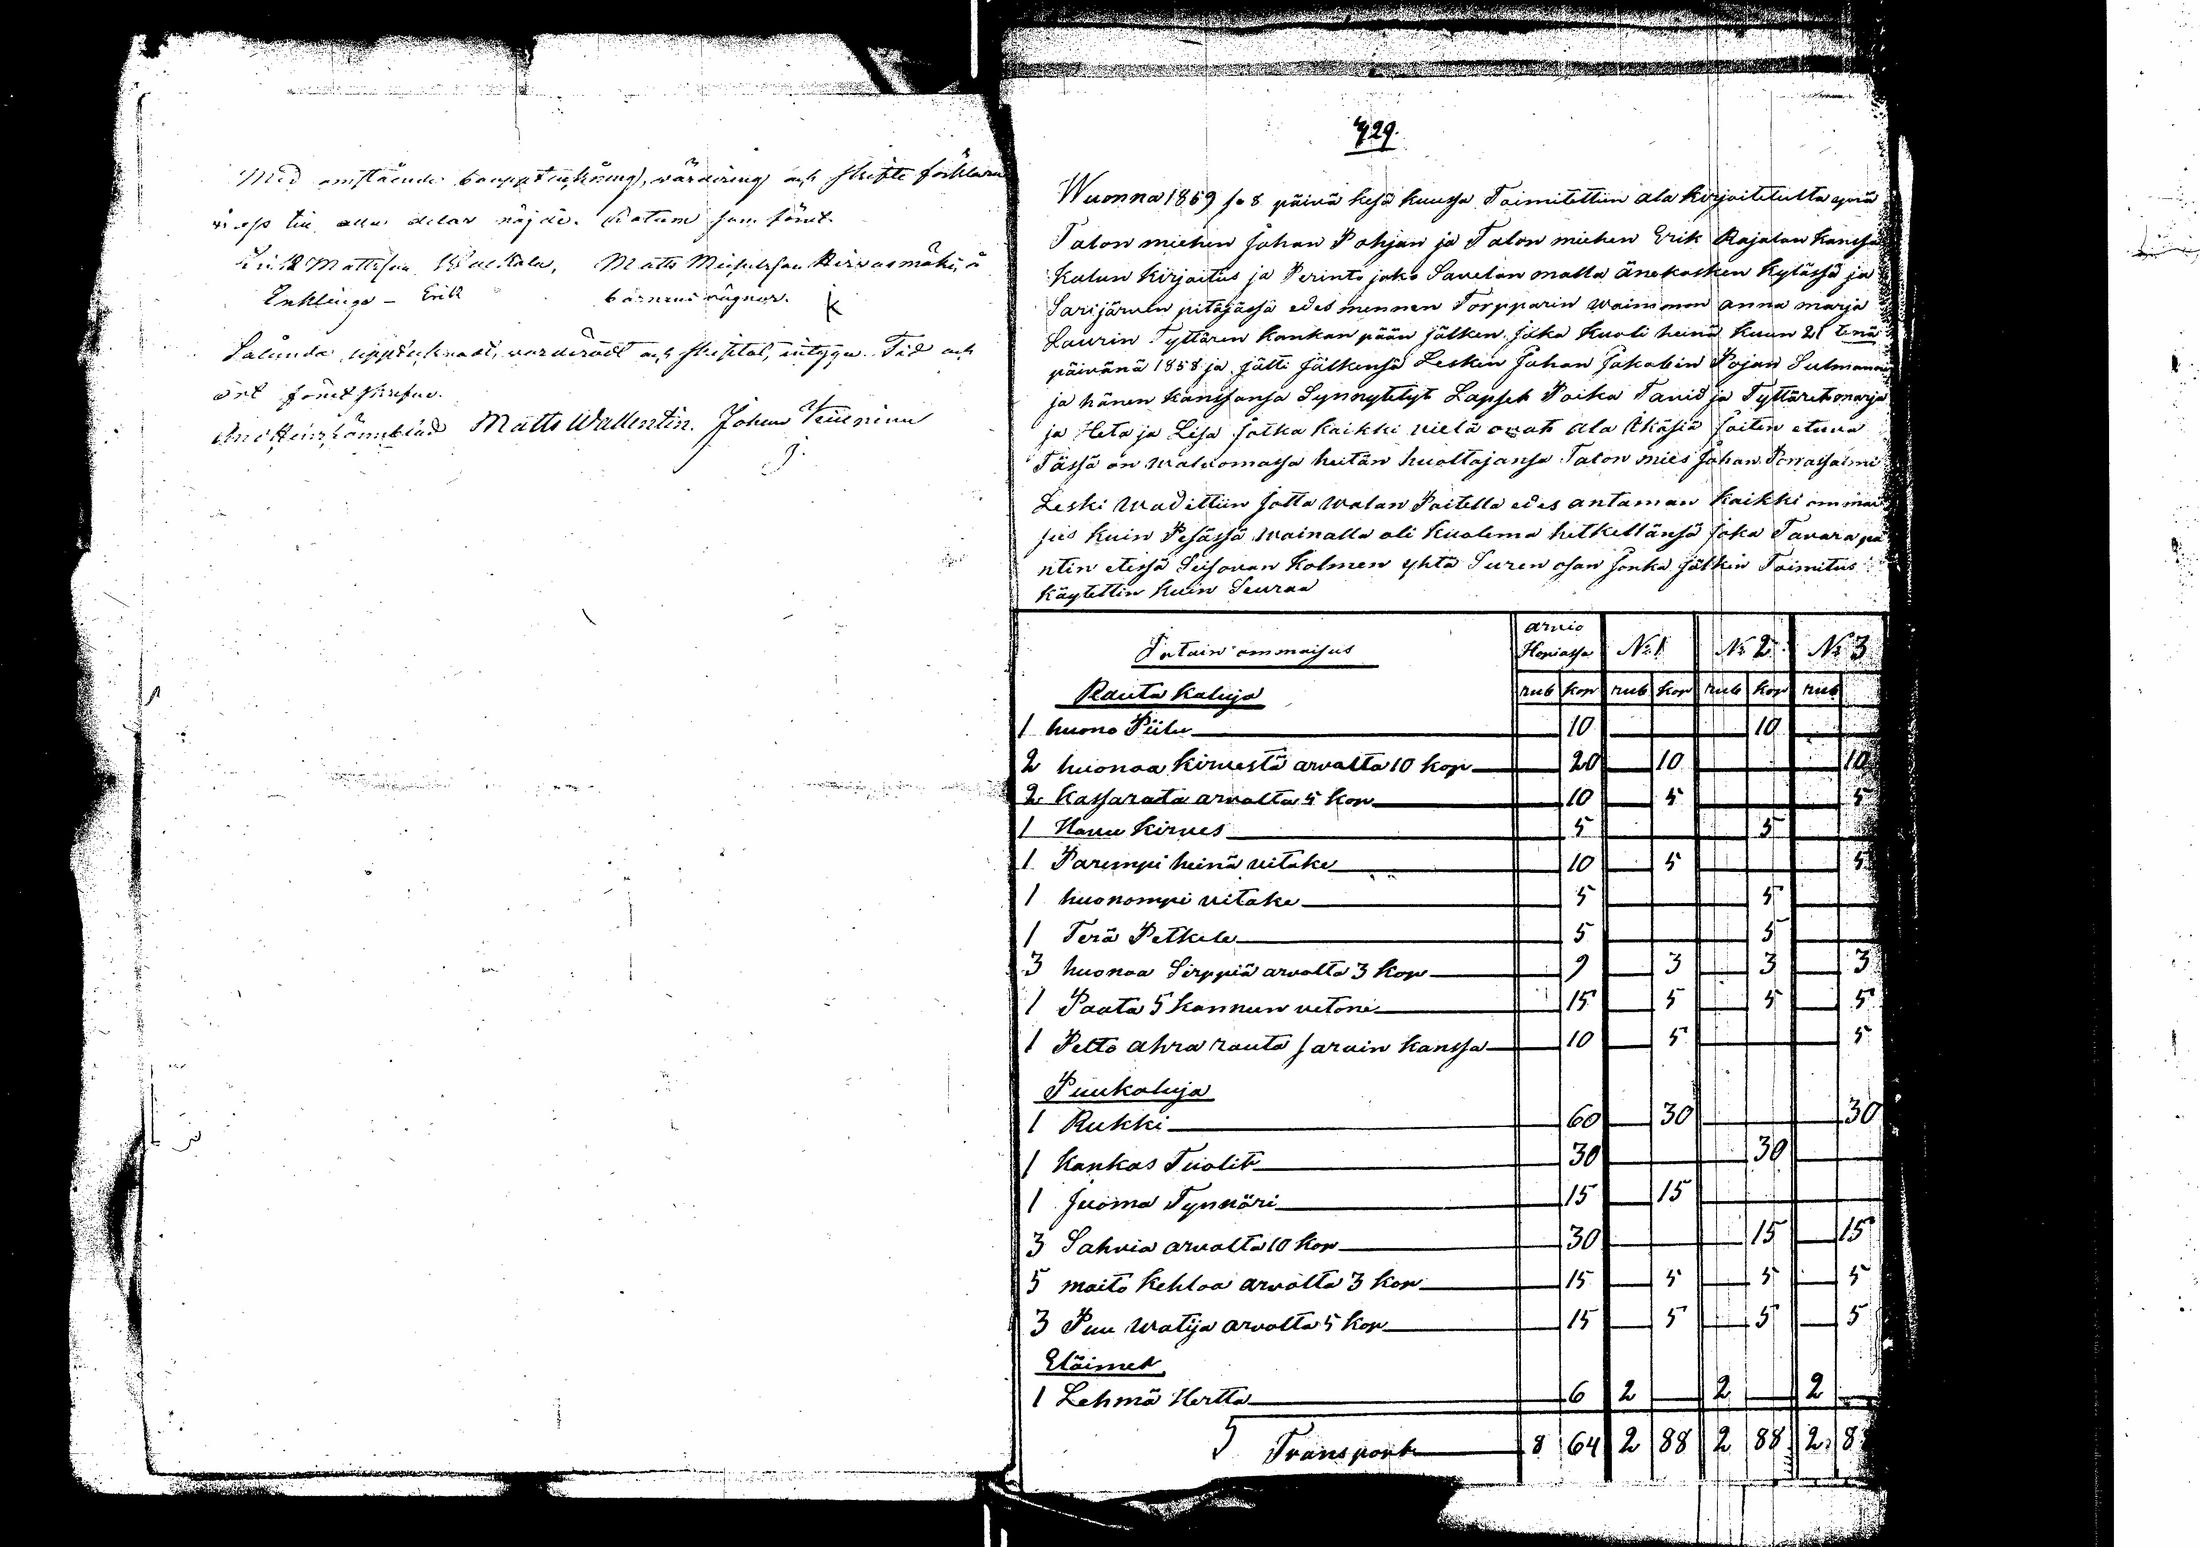 Med omstående bouppteckning, wärdering och skifte förklara
wi oss till alla delar nöjde. Datum som förut.
Erik Mattsson Matts Michelsson Hirvasmäki, å
Enklinge - Erik barnens vägnar.
Sålunda upptecknadt, värderadt och skiftat, intyga. Tid och
ort förutskrefne.
Matts Wallentin. Johan
729.
Wuonna 1859 sa 8 päivä kesä kuussa Toimitettiin ala kirjoitetulta ynnä
Talon miehen Johan Pohjan ja Talon miehen Erik Rajalan kanssa
kalun kirjoitus ja Perinto jako Savelan malla änekosken kylässä ja
Sarijärven pitäjässä edes mennen Torpparin waimmon anna marja
Laurin Tyttären kankan pään jälken, joka kuoli heinä kuun 21 tenä
päivänä 1858 ja jätti jälkensä Lesken Johan Jakobin Pojan
ja hänen kanssansa Synnytetyt Lapset Poika Tavid ja Tyttäret marja
ja Heta ja Lisa jotka kaikki vielä ovat ala ikäsiä joiten etuva
Tässä on walvomassa heitän huoltajansa Talon mies Johan
Leski wadittiin jotta walan Paitella edes antaman kaikki ommai
sus kuin Pesässä wainalla oli kuolema hetkellänsä joka Tavara pa
ntin etessä Seisovan kolmen yhtä Suren osan jonka jälkin Toimitus
käytettin kuin Seuraa
Jrtain ommaisus arvio Hopiassa No 1 No 2 No 3
Rauta kaluja rub kop rub kop rub kop rub
1 huono Piilu 10 10
2 huonoa kirvestä arvolta 10 kop 20 10 10
2 kassarata arvolta 5 kop 10 5 5
1 Havu kirves 5 5
1 Parempi heinä vitake 10 5 5
1 huonompi vitake 5 5
1 Terä Petkele 5 5
3 huonoa Sirppiä arvolta 3 kop 9 3 3 3
1 Paata 5 kannun vetone 15 5 5 5
1 Pelto ahra rauta sarvin kanssa 10 5 5
Puukaluja
1 Rukki 60 30 30
1 kankas Tuolit 30 30
1 Juoma Tynnöri 15 15
3 Sahvia arvolta 10 kop 30 15 15
5 maito kehloa arvolta 3 kop 15 5 5 5
3 Puu watija arvolta 5 kop 15 5 5 5
Eläimet
1 Lehmä Hertta 6 2 2 2
Transport 8 64 2 88 2 88 2 8